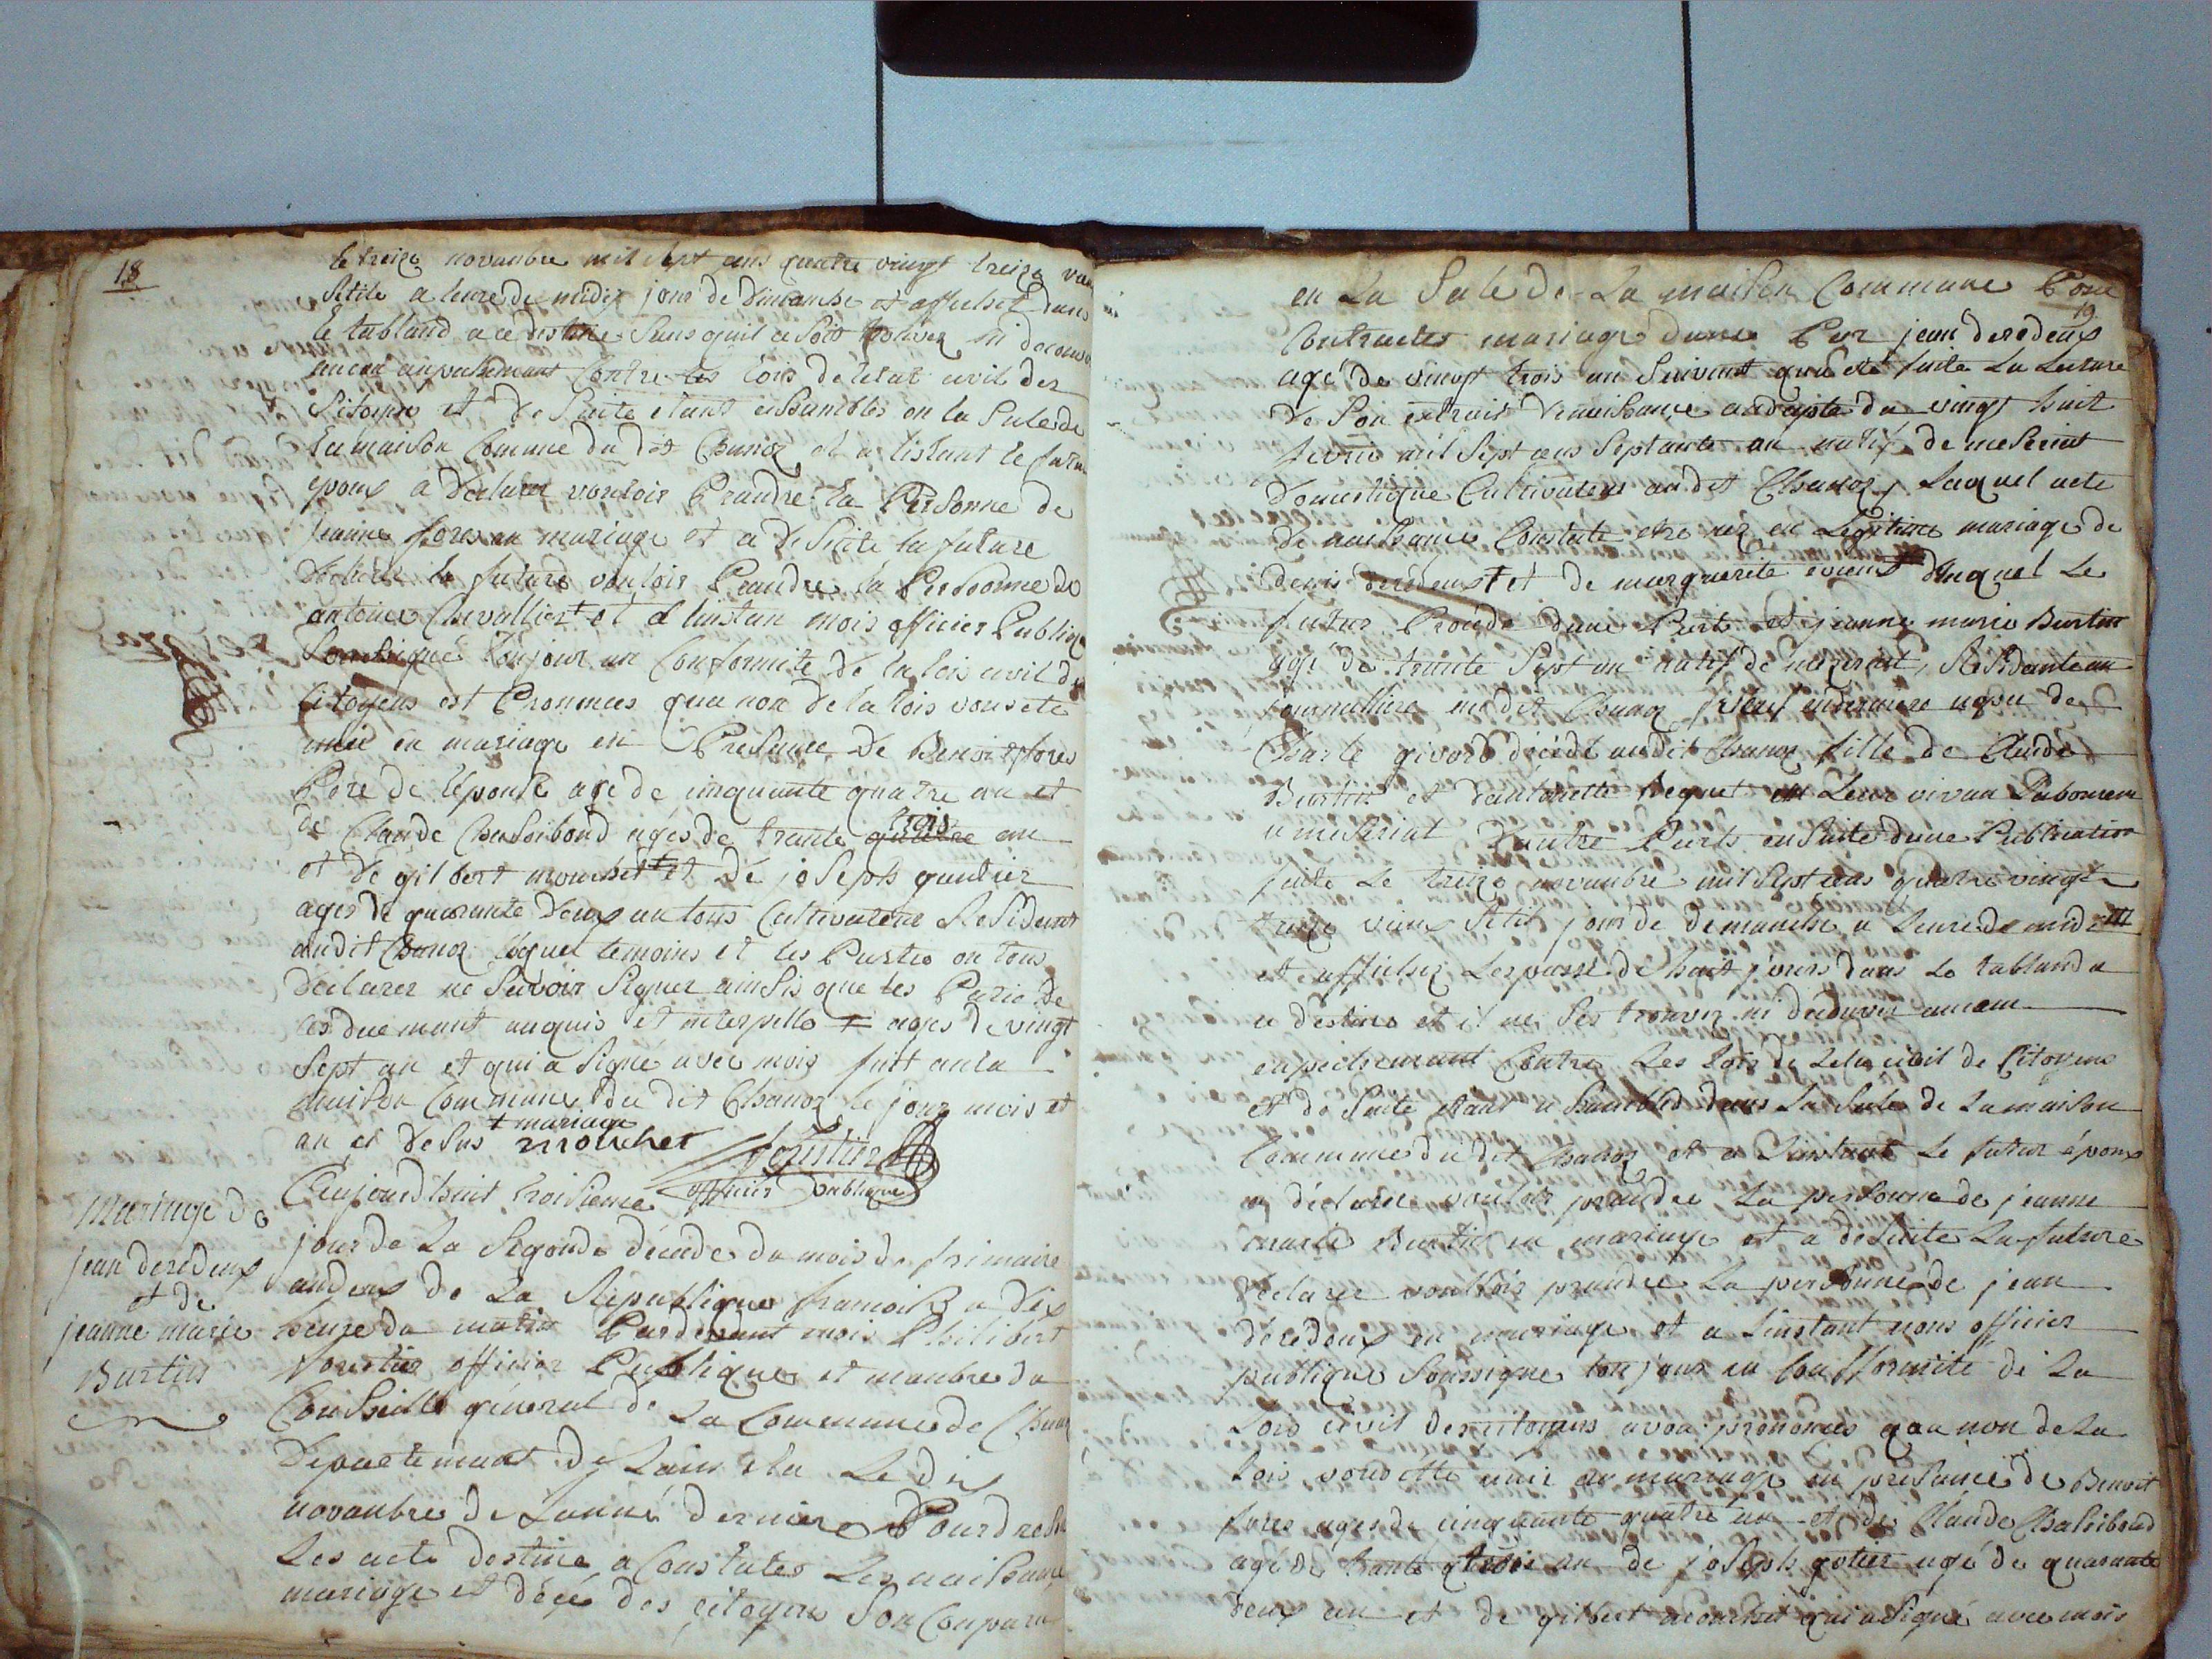 18
le treize novanbre mil sept sens quatre vingt treize vieu
Stile a leure de midis jour de dimanche et affichez dans
le tabland a ce destine sans quil ce soit trouver ni decouver
aucun anpechemant Contre les lois de letat civil des
Sitoyens et de suite etant ensambles en la Sale de
la maison Comune du dit Chanoz et a listant le futur
epoux a declarer vouloir Prandre la Personne de
jeanne fores en mariage et a de suite la future
declaree la future vouloir Prandre la Personne de
antoine Chevallier + et a linstan mois officier Publique
Soussigné toujour en Conformite de la lois civil des
Citoyens est Prononcer qua non de la lois vous ete
unie en mariage en Presance de Benoit fores
Pere de lepouse age de cinquante quatre an et
de Claude Chasribond agés de trante quattre trois an
et de gilbert mouchet + et de joseph gautier
ages de quarante deux an tous Cultivateur Residant
audit Chanoz lequel temoins et les Partie on tous
declarer ne Savoir Signer ainsis que les Parie de
ces duemant anquis et interpelle + ages de vingt
sept an et qui a Signé avec mois fait an la
maison Commune du dit Chanoz le jour mois et
an si desus + mariage mouchet forestier
officier publique
Mariage de
jean deredeux
et de
jeanne marie
Burtin
Aujourdhuit troisieme
jour de La Segonde décade du mois de frimaire
andeux de La Republique francoise a dix
heure du matin Pardevant mois Philibert
forestier officier Publique et manbre du
Conseille géneral de La Commune de Chanoz
Departemant de Lain elu Le dix
novanbre de Lanné derniere Pour dresser
Les acte destine a Constater Les naissance
mariage et décé des citoyens Son Conparu
19
en La Sale de La maison Commune Pour
Contracter mariage dune Par jean deredeux
agé de vingt trois an Suivant qua eté faite La Lecture
de Son extrait denaissance andapte du vingt huit
fevrie mil Sept cens Septante an natif de meseriat
domestique Cultivateur audit Chanoz, Lequel acte
de naissance Constate etre nez en Legitime mariage de
denis deredeux + et de marguerite evieux duquel Le
futur Procede dune Part et jeanne marie Burtin
age de trante Sept an natif de mezeriat, Residante an
audit Chanoz veuve enderniere de
Charle givord décédé audit Chanoz fille de Claude
Burtin et dantoinette Leur vivan Laboureur
a meseriat dautre Parts ensuite dune Publication
faite Le treize novanbre mil sept cens quatre vingt
treize vieux Stile jour de demanche a Leure de midi
et affichez Lespasse de huit jours dans Le tabland a
ce destine et il ne ses trouvez ni decouver aucun
enpechemant Contre Les lois de Letat civil de Citoyens
et de Suite etant ensambled dans La Sale de La maison
Commune du dit Chanoz et a Linstant Le futur époux
a déclaree vouloir prandre La personne de jeanne
marie Burtin en mariage et a desuite La future
declaree voulloir prandre La personne de jean
déredeux en mariage et a Linstant nous officier
publique Soussigne toujour en Confformité de La
Lois civil des citoyens avon prononcer qua non de La
Lois vous ette unie an mariage en presance de Benoit
fores ages de cinquante quatre an et de Claude Chasribond
agé de trante trois an de joseph gotier agé de quarante
deux an et de gilbert mouchet qui a Signé avec mois